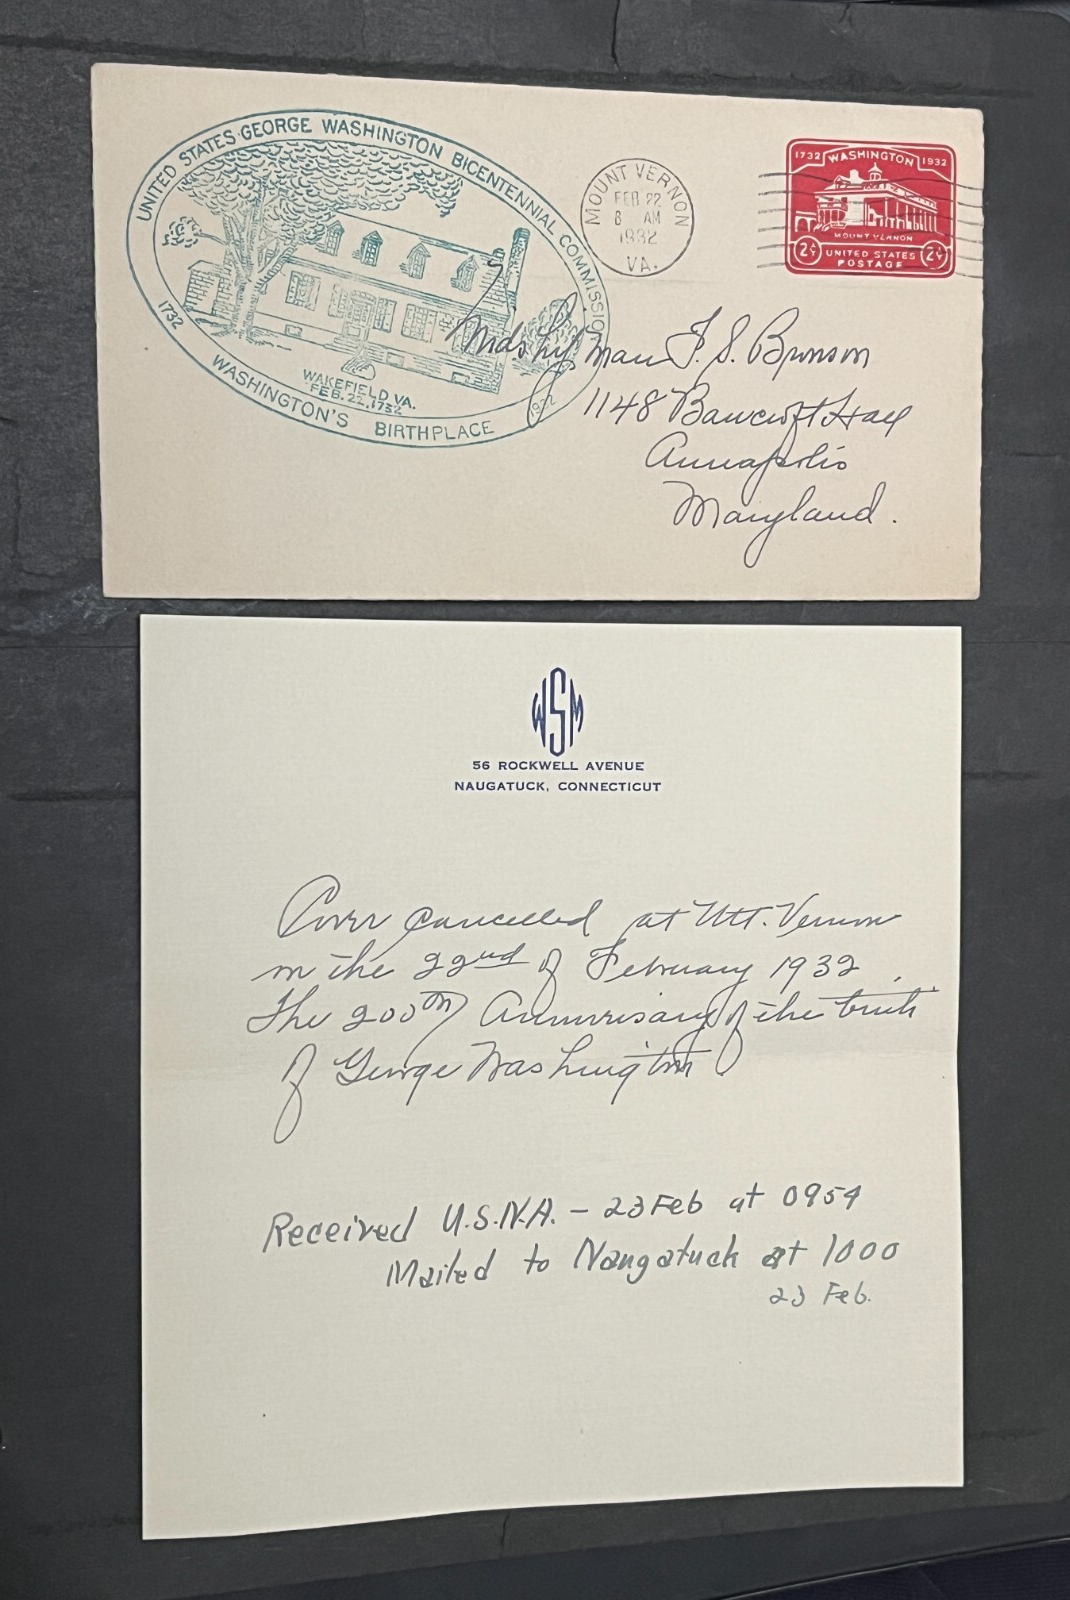 UNITED STATES GEORGE WASHINGTON BICENTENNIAL COMMISSION
1732
WAKEFIELD, VA.
FEB. 22, 1732
WASHINGTON'S BIRTHPLACE
1932
MOUNT VERNON
FEB 22
8 AM
1932
VA.
1732 WASHINGTON 1932
MOUNT VERNON
2¢ UNITED STATES 2¢
POSTAGE
Midshipman F. S. Bronson
1148 Bancroft Hall
Annapolis
Maryland.
WSM
56 ROCKWELL AVENUE
NAUGATUCK, CONNECTICUT
Cover cancelled at Mt. Vernon
on the 22nd of February 1932.
The 200th Anniversary of the birth
of George Washington.
Received U.S.N.A. - 23 Feb at 0954
Mailed to Naugatuck at 1000
23 Feb.